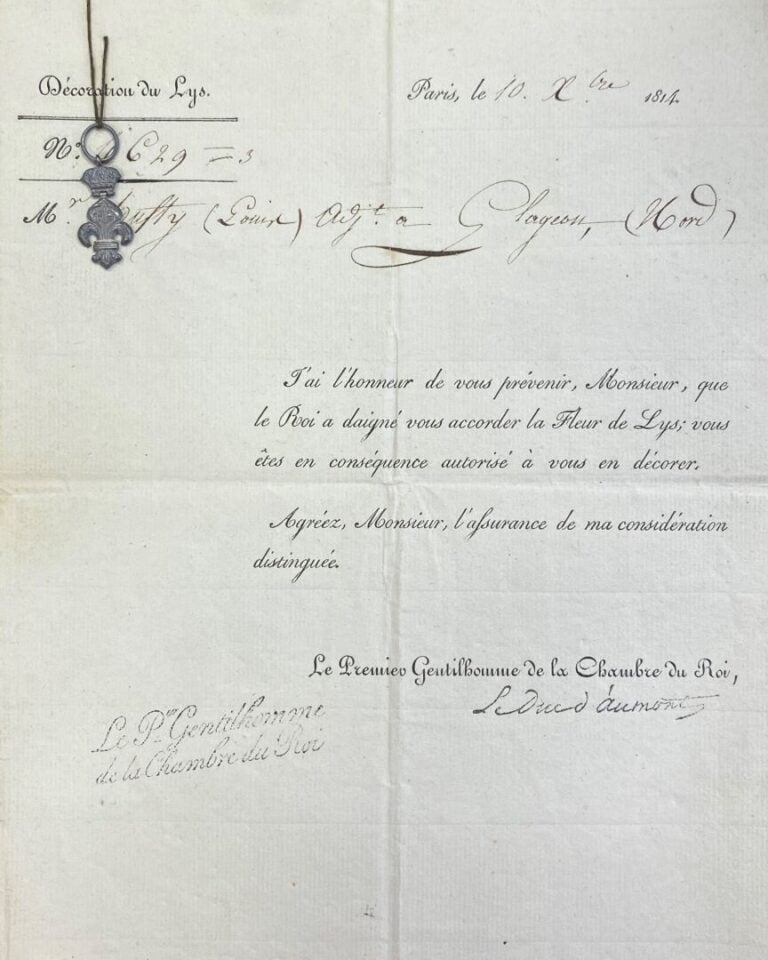 Décoration du Lys.
Paris, le 10. Xbre 1814.
N.° 29 = 3
Mr (Louis) Adj.t a Glageon, (Nord)
J'ai l'honneur de vous prévenir, Monsieur, que
le Roi a daigné vous accorder la Fleur de Lys; vous
êtes en conséquence autorisé à vous en décorer.
Agréez, Monsieur, l'aſsurance de ma considération
distinguée.
Le Premier Gentilhomme de la Chambre du Roi,
Le Duc d'aumont
Le Pier Gentilhomme
de la Chambre du Roi